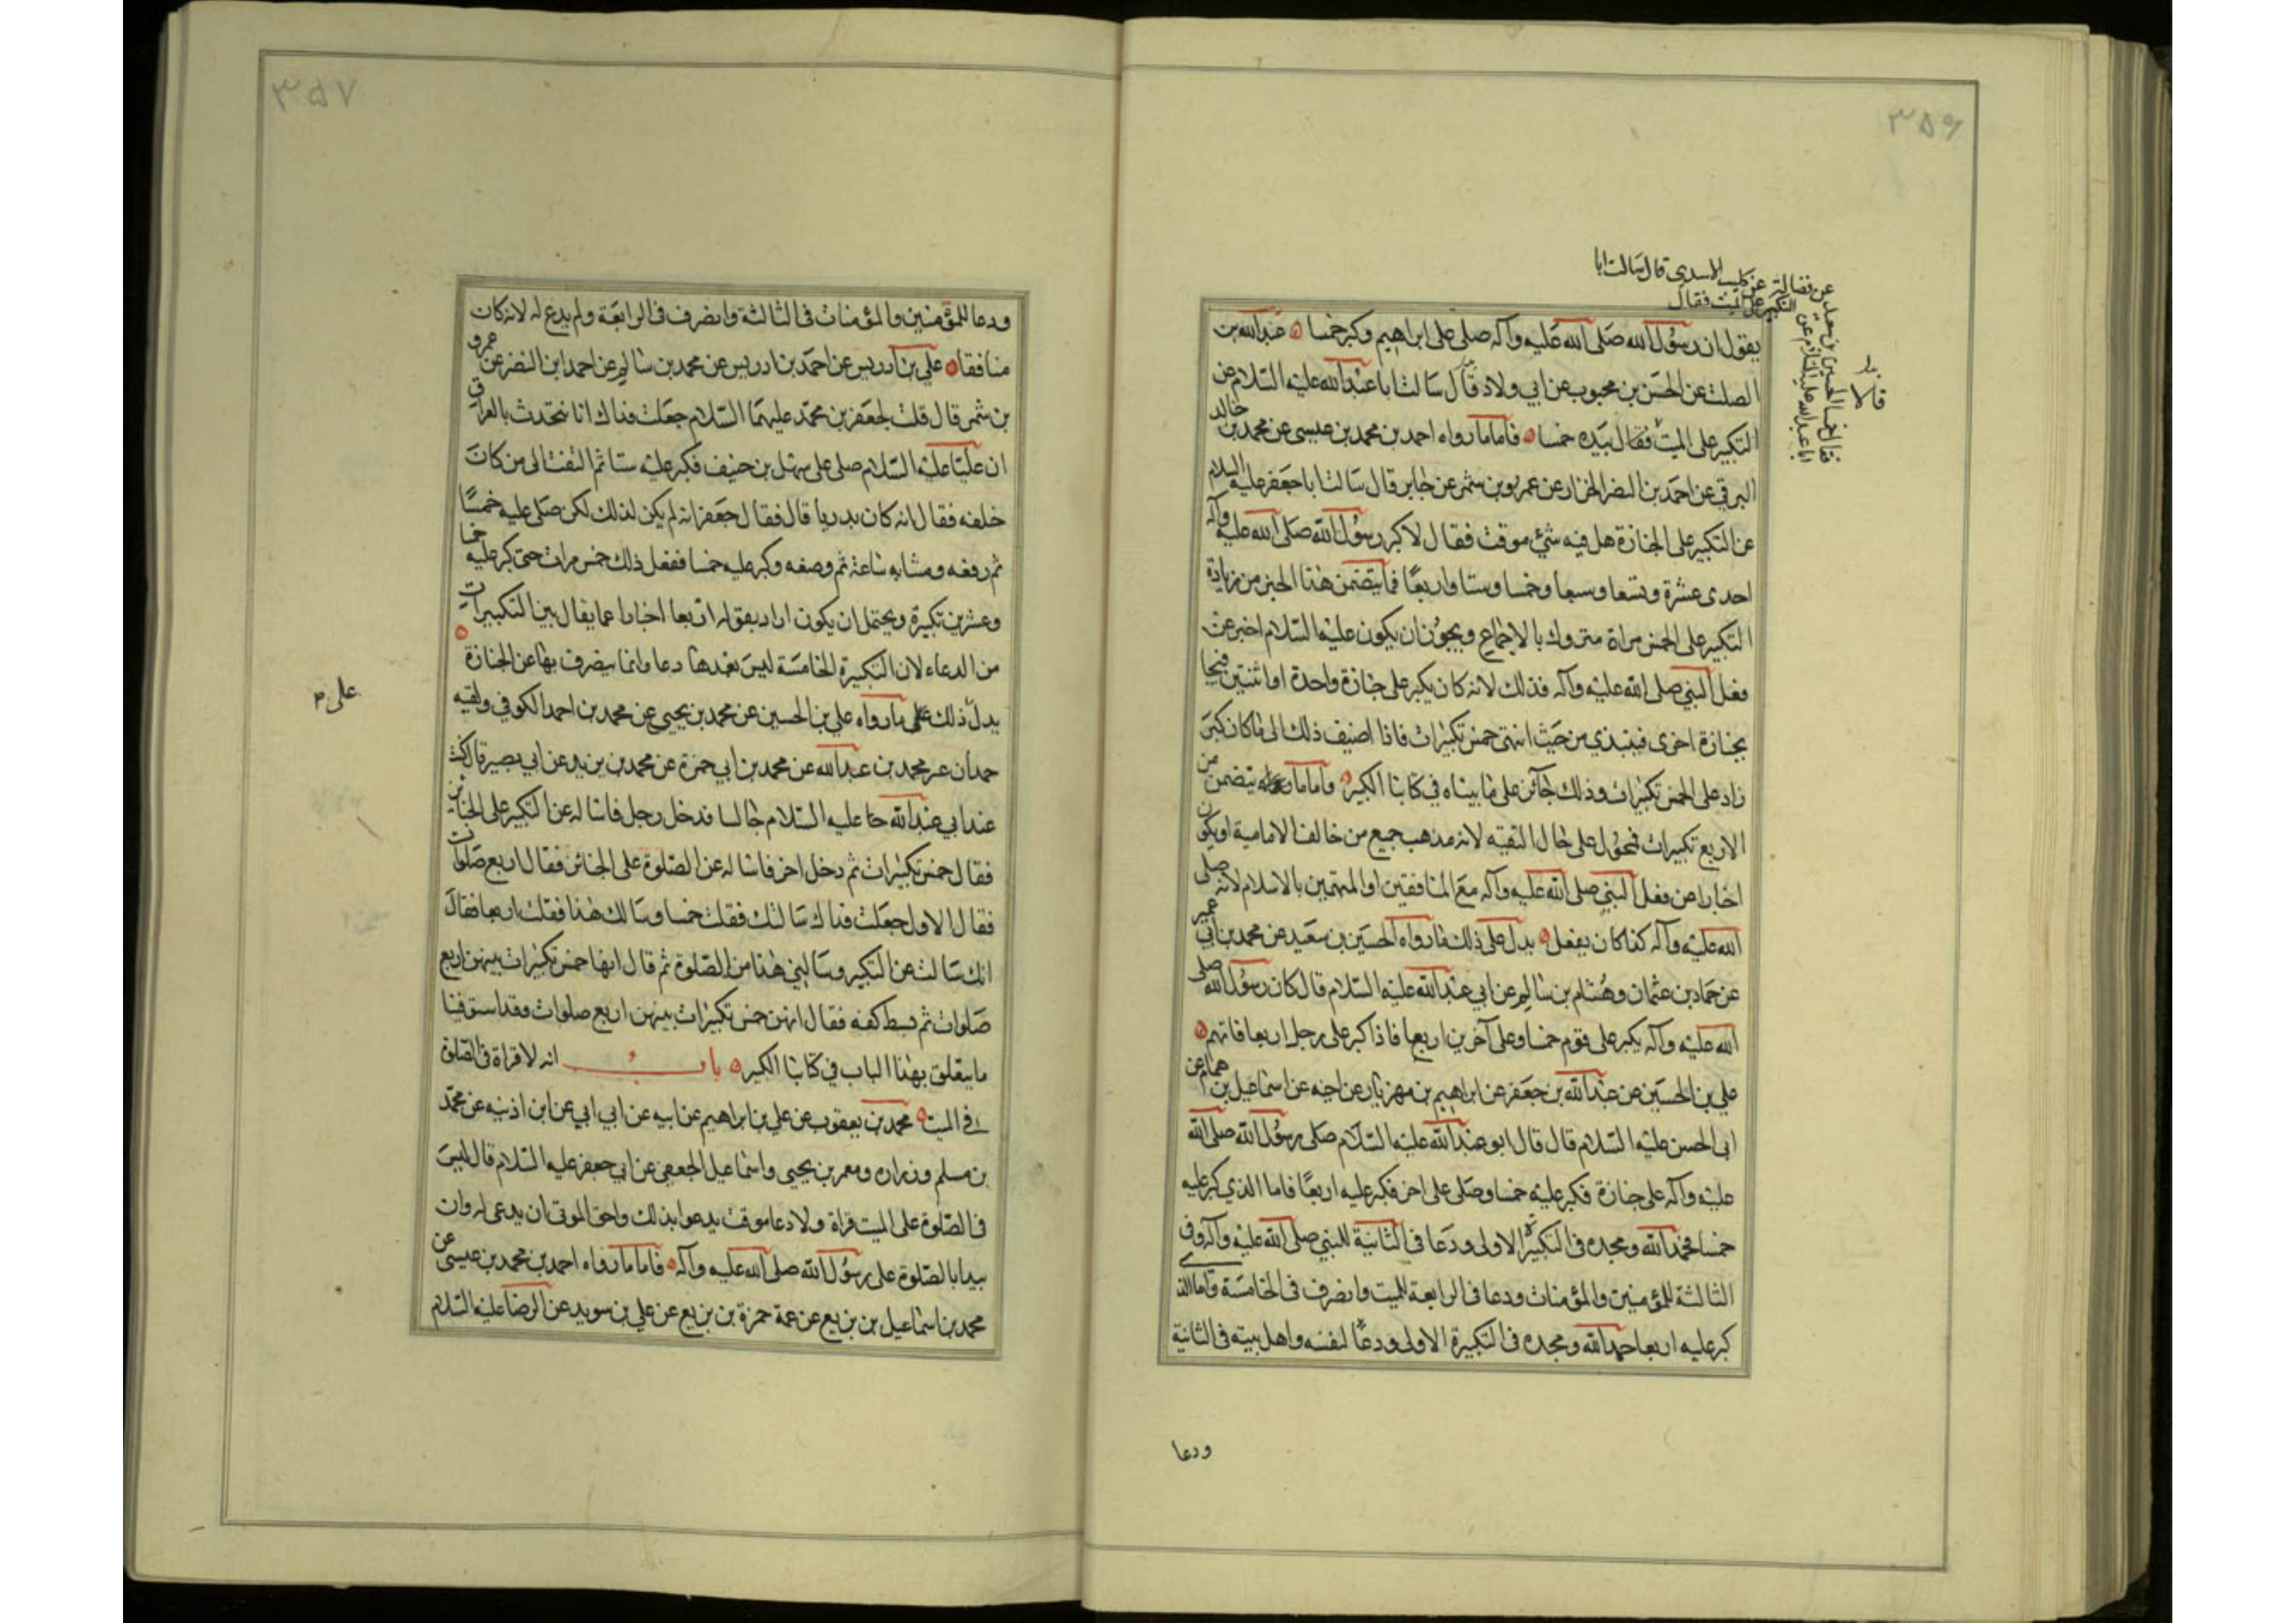 ٣٥٦
عن فضالة عن كليب الاسدى قال سالت ابا
التكبير على الميت فقال
يقول ان رسول الله صلى الله عليه وآله صلى على ابراهيم وكبر خمسا عبدالله بن
الصلت عن الحسن بن محبوب عن ابي ولاد قال سالت ابا عبدالله عليه السلام عن
التكبير على الميت فقال بيده خمسا فاما ما رواه احمد بن محمد بن عيسى عن محمد بن خالد
البرقي عن احمد بن النضر الخزاز عن عمرو بن شمر عن جابر قال سالت ابا جعفر عليه السلام
عن التكبير على الجنازة هل فيه شئ موقت فقال لا كبر رسول الله صلى الله عليه وآله
احدى عشرة وتسعا وسبعا وخمسا وستا واربعا فما يتضمن هذا الخبر من زيادة
التكبير على الخمس مراة متروك بالاجماع ويجوز ان يكون عليه السلام اخبر عن
فعل النبي صلى الله عليه وآله فذلك لانه كان يكبر على جنازة واحدة او اثنتين فيجا
بجنازة اخرى فيبتدي من حيث انتهى خمس تكبيرات فاذا اضيف ذلك الى ما كان كبر
زاد على الخمس تكبيرات وذلك جائز على ما بيناه في كتابنا الكبير واما ما يتضمن من
الاربع تكبيرات فمحول على حال التقيه لانه مذهب جميع من خالف الامامية او يكون
اخبارا عن فعل النبي صلى الله عليه وآله مع المنافقين او المتهمين بالاسلام لانه صلى
الله عليه وآله كذا كان يفعل يدل على ذلك ما رواه الحسين بن سعيد عن محمد بن ابي عمير
عن حماد بن عثمان وهشام بن سالم عن ابي عبدالله عليه السلام قال كان رسول الله صلى
الله عليه وآله يكبر على قوم خمسا وعلى آخرين اربعا فاذا كبر على رجل اربعا فاتهم
علي بن الحسين عن عبدالله بن جعفر عن ابراهيم بن مهزيار عن اخيه عن اسماعيل بن همام عن
ابى الحسن عليه السلام قال قال ابو عبدالله عليه السلام صلى رسول الله صلى الله
عليه وآله على جنازة فكبر عليه خمسا وصلى على اخر فكبر عليه اربعا فاما الذي كبر عليه
خمسا فحمد الله ومجده فى التكبيرة الاولى ودعا فى الثانية للنبي صلى الله عليه وآله وفى
الثالثة للمؤمنين والمؤمنات ودعا فى الرابعة للميت وانصرف فى الخامسة واما الذي
كبر عليه اربعا حمد الله ومجده فى التكبيرة الاولى ودعا لنفسه واهل بيته فى الثانية
ودعا
٣٥٧
ودعا للمؤمنين والمؤمنات فى الثالثة وانصرف فى الرابعة ولم يدع له لانه كان
منافقا علي بن ادريس عن احمد بن ادريس عن محمد بن سالم عن احمد ابن النضر عن عمرو
بن شمر قال قلت لجعفر بن محمد عليهما السلام جعلت فداك انا نتحدث بالعراق
ان عليا عليه السلام صلى على سهل بن حنيف فكبر عليه ستا ثم التفت الى من كان
خلفه فقال انه كان بدريا قال فقال جعفر انه لم يكن لذلك لكن صلى عليه خمسا
ثم رفعه ومشا به ساعة ثم وضعه وكبر عليه خمسا ففعل ذلك خمس مرات حتى كبر عليه خمسا
وعشرين تكبيرة ويحتمل ان يكون اراد بقوله اربعا اخبارا عما يقال بين التكبيرات
من الدعاء لان التكبيرة الخامسة ليس بعدها دعا وانما ينصرف بها عن الجنازة
على م
يدل ذلك على ما رواه علي بن الحسين عن محمد بن يحيى عن محمد بن احمد الكوفي ولقبه
حمدان عن محمد بن عبدالله عن محمد بن ابي حمزة عن محمد بن يزيد عن ابي بصير قال كنت
عند ابي عبدالله عليه السلام جالسا فدخل رجل فاساله عن التكبير على الجنائز
فقال خمس تكبيرات ثم دخل اخر فاساله عن الصلوة على الجنائز فقال اربع صلوات
فقال الاول جعلت فداك سالتك فقلت خمسا وسالك هذا فقلت اربعا فقال
انك سالت عن التكبير وسالنى هذا من الصلوة ثم قال انها خمس تكبيرات بينهن اربع
صلوات ثم بسط كفه فقال انهن خمس تكبيرات بينهن اربع صلوات وقد استوفينا
ما يتعلق بهذا الباب في كتابنا الكبير باب انه لا قراة فى الصلوة
على الميت محمد بن يعقوب عن علي بن ابراهيم عن ابيه عن ابي ابي عن ابن اذنيه عن محمد
بن مسلم وزراره ومعمر بن يحيى واسماعيل الجعفي عن ابي جعفر عليه السلام قال ليس
فى الصلوة على الميت قراة ولا دعا موقت يدعوا بذلك واحق الموتى ان يدعى له وان
يبدا بالصلوة على رسول الله صلى الله عليه وآله فاما ما رواه احمد بن محمد بن عيسى عن
محمد بن اسماعيل بن بزيع عن عمة حمزة بن بزيع عن علي بن سويد عن الرضا عليه السلام